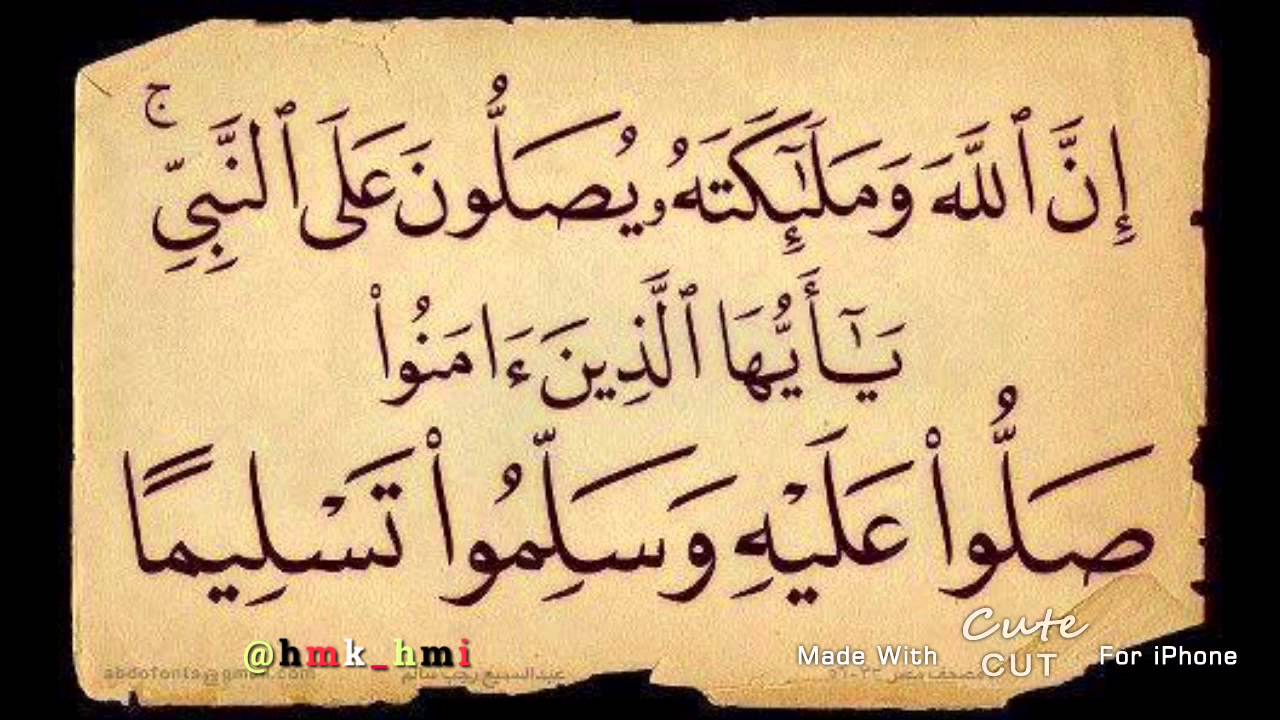 إِنَّ ٱللَّهَ وَمَلَـٰٓئِكَتَهُۥ يُصَلُّونَ عَلَى ٱلنَّبِىِّ ۚ
يَـٰٓأَيُّهَا ٱلَّذِينَ ءَامَنُوا۟
صَلُّوا۟ عَلَيْهِ وَسَلِّمُوا۟ تَسْلِيمًا
@hmk_hmi
Made With Cute CUT For iPhone
abdofonts@gmail.com عبدالسميع رجب سالم